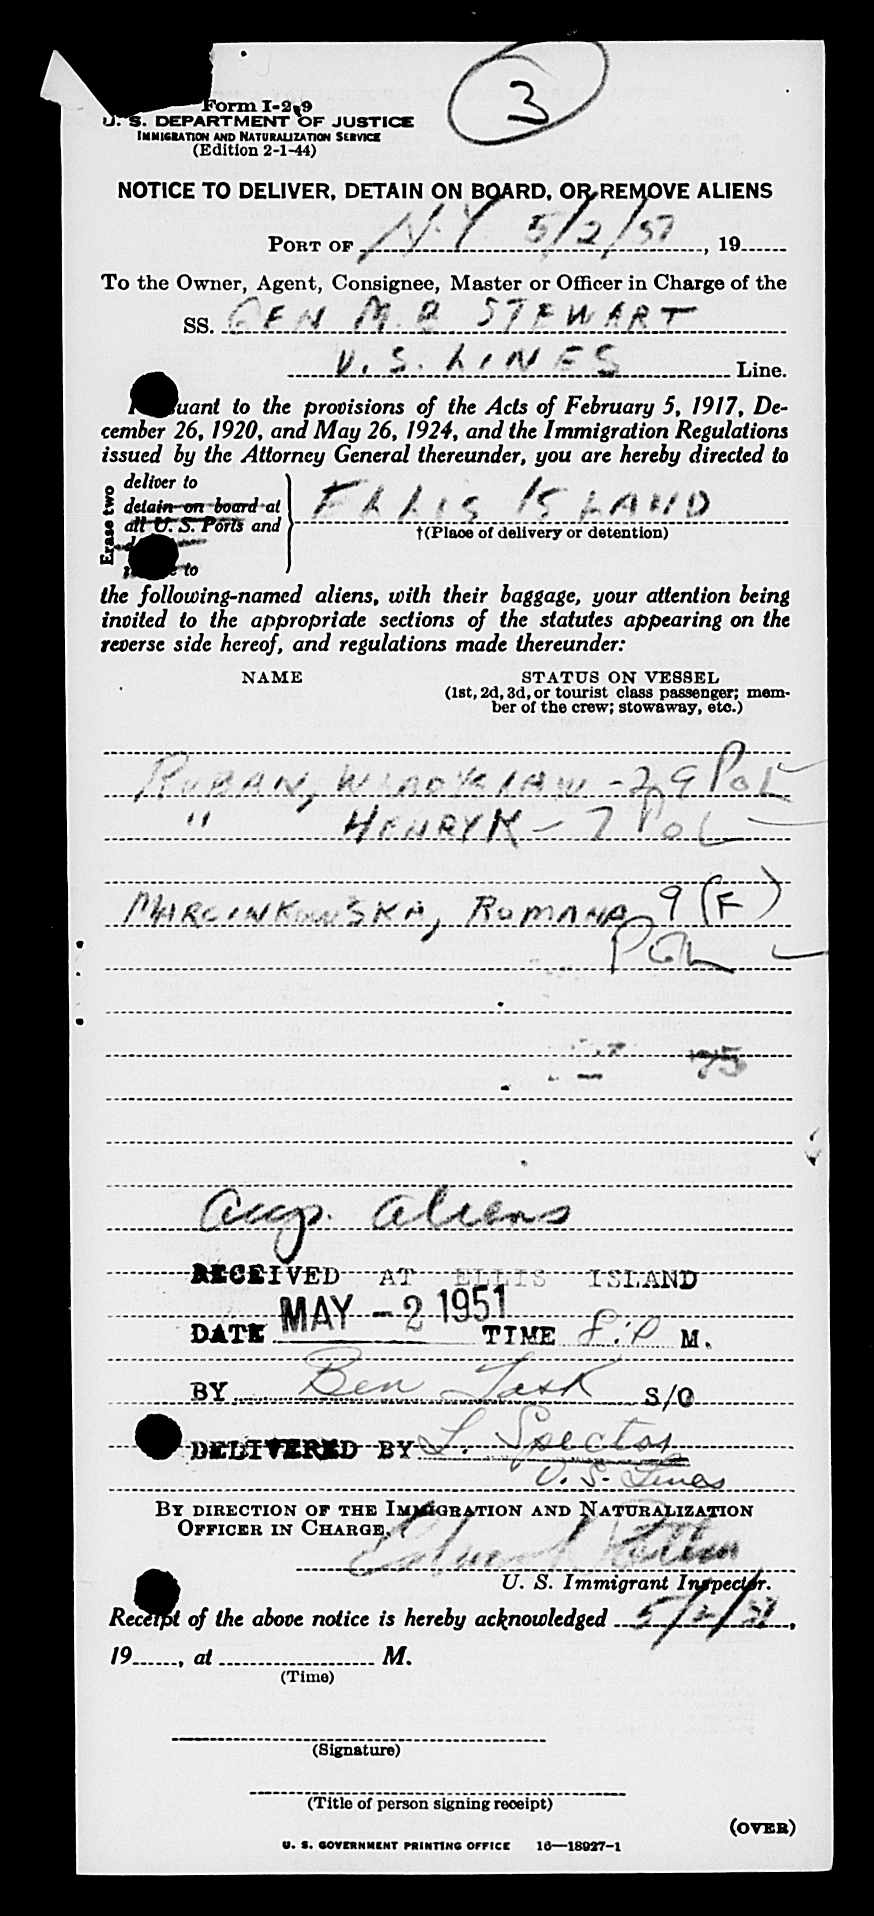 3
Form I-259
U. S. DEPARTMENT OF JUSTICE
IMMIGRATION AND NATURALIZATION SERVICE
(Edition 2-1-44)
NOTICE TO DELIVER, DETAIN ON BOARD, OR REMOVE ALIENS
PORT OF N.Y 5/2/51, 19
To the Owner, Agent, Consignee, Master or Officer in Charge of the
SS. GEN M.B STEWART
U.S. LINES Line.
Pursuant to the provisions of the Acts of February 5, 1917, De-
cember 26, 1920, and May 26, 1924, and the Immigration Regulations
issued by the Attorney General thereunder, you are hereby directed to
Erase two
deliver to
detain on board at
all U. S. Ports and
to
ELLIS ISLAND
†(Place of delivery or detention)
the following-named aliens, with their baggage, your attention being
invited to the appropriate sections of the statutes appearing on the
reverse side hereof, and regulations made thereunder:
NAME STATUS ON VESSEL
(1st, 2d, 3d, or tourist class passenger; mem-
ber of the crew; stowaway, etc.)
RUBAN, WLADYSLAW - 29 POL
" HENRYK - 7 POL
MARCINKOWSKA, ROMANA 9 (F)
POL
aliens
RECEIVED AT ELLIS ISLAND
DATE MAY - 2 1951 TIME 8:P M.
BY Ben Task S/O
DELIVERED BY L. Spector
U. S. Lines
BY DIRECTION OF THE IMMIGRATION AND NATURALIZATION
OFFICER IN CHARGE.
Edward
U. S. Immigrant Inspector.
Receipt of the above notice is hereby acknowledged 5/2/51,
19, at M.
(Time)
(Signature)
(Title of person signing receipt)
(OVER)
U. S. GOVERNMENT PRINTING OFFICE 16—18927-1